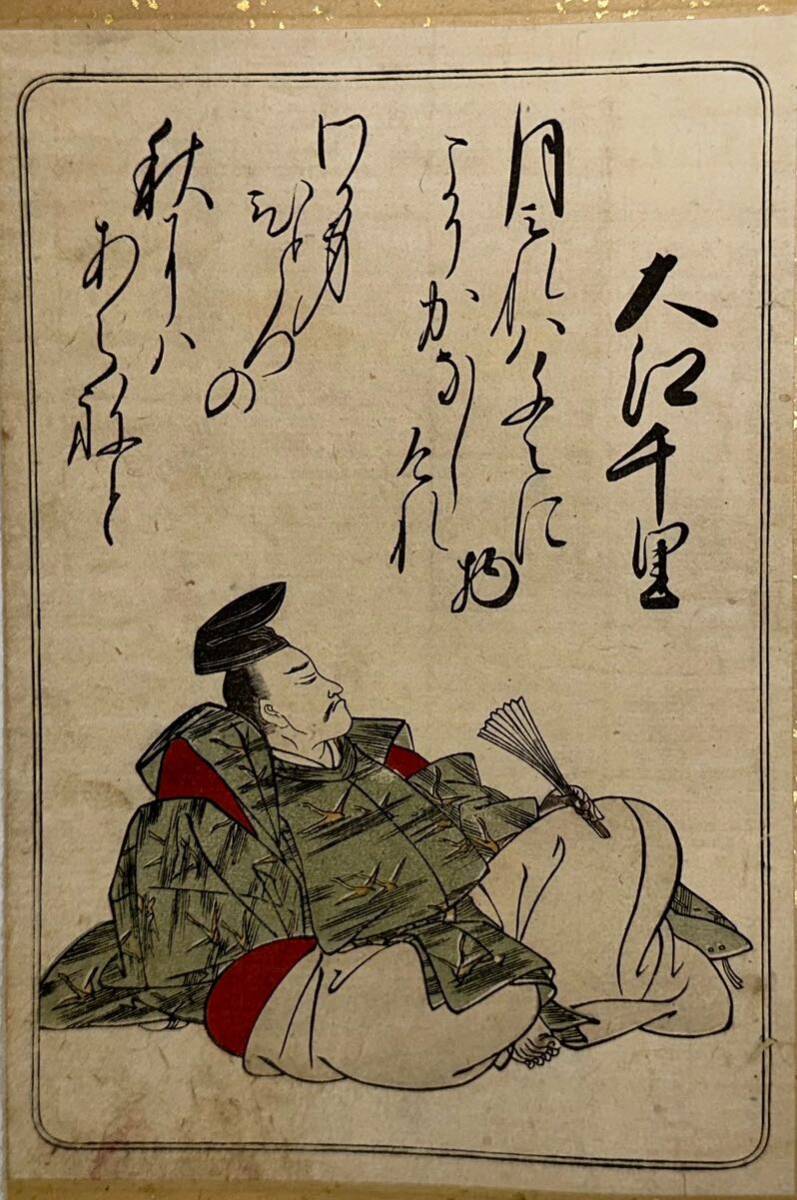 大江千里
月みれハちゝに物
こそかなしけれ
わか身
ひとつの
秋にハ
あらねと